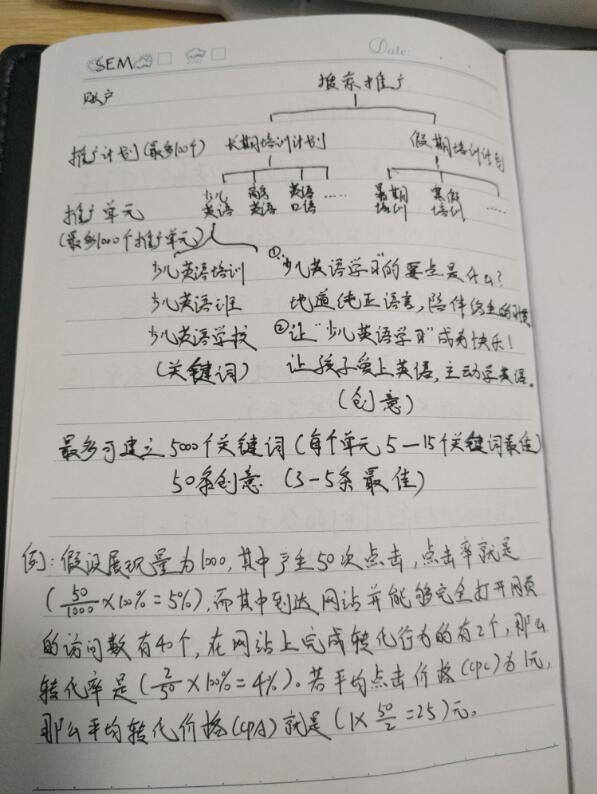 SEM
Date:
账户 搜索推广
推广计划(最多100个) 长期培训计划 假期培训计划
少儿英语 商务英语 英语口语 …… 暑期培训 寒假培训 ……
推广单元
(最多1000个推广单元)
少儿英语培训 ①"少儿英语学习"的要点是什么?
少儿英语班 地道纯正语言,陪伴终生的习惯
少儿英语学校 ②让"少儿英语学习"成为快乐!
(关键词) 让孩子爱上英语,主动学英语。
(创意)
最多可建立5000个关键词(每个单元5—15个关键词最佳)
50条创意 (3-5条最佳)
例:假设展现量为1000,其中产生50次点击,点击率就是
(50/1000×100%=5%),而其中到达网站并能够完全打开网页
的访问数有40个,在网站上完成转化行为的有2个,那么
转化率是(2/50×100%=4%)。若平均点击价格(CPC)为1元,
那么平均转化价格(CPA)就是(1×50/2=25)元。